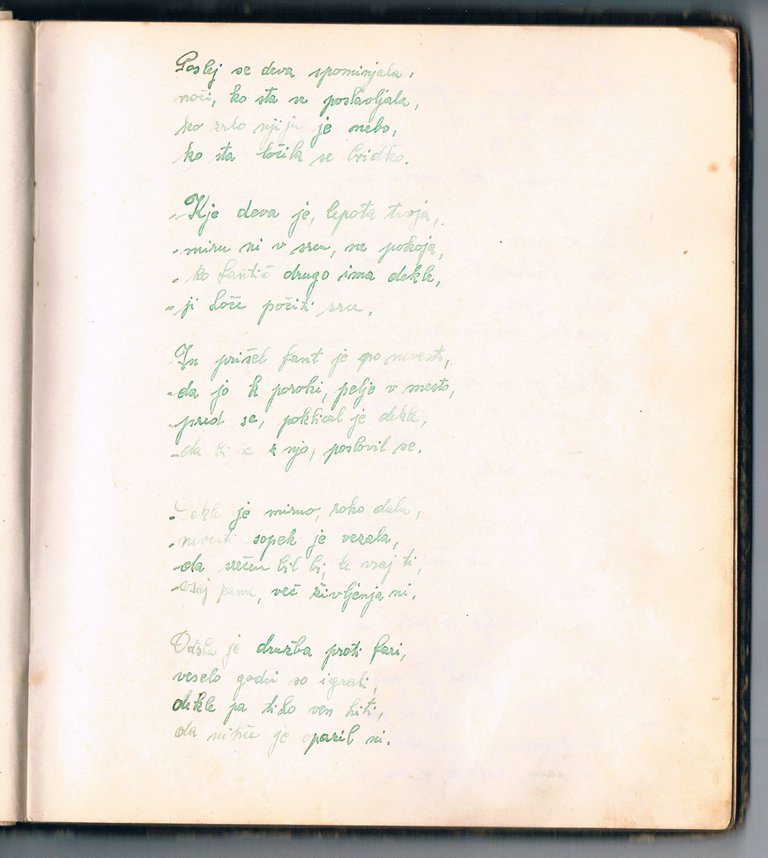 Poslej se deva spominjala,
noči, ko sta se poslavljala,
ko zrlo njiju je nebo,
ko sta ločila se bridko.
Kje deva je, lepota tvoja,
miru ni v srcu, ne pokoja,
ko fantič drugo ima dekle,
ji hoče počiti srce.
In prišel fant je po nevesto,
da jo k poroki, pelje v mesto,
pred se, poklical je dekle,
da bi z njo, poslovil se.
Dekle je mirno, roko dala,
nevesti šopek je vezala,
da srečen bil bi, le vsaj ti,
vsaj zame, več življenja ni.
Odšla je družba proti fari,
veselo godci so igrali,
dekle pa tiho ven hiti,
da nihče je opazil ni.